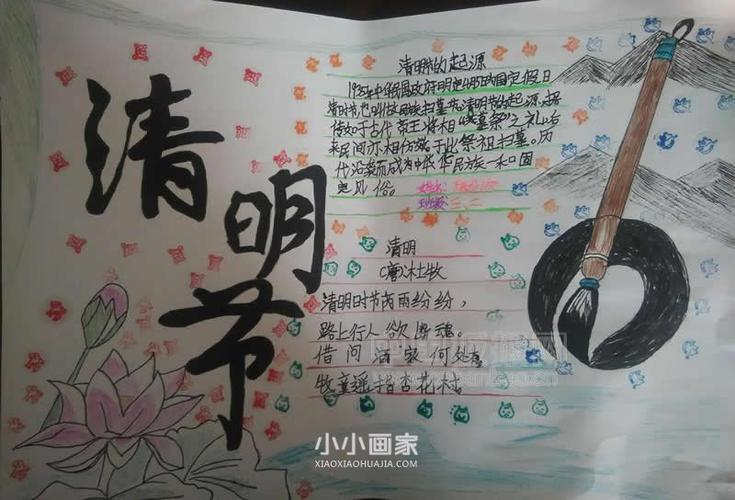 清明节
清明节的起源
1935年中华民国政府明定4月5日为国定假日
清明节,也叫做民族扫墓节,清明节的起源,据
传始于古代帝王将相"墓祭"之礼,后
来民间亦相仿效,于此祭祖扫墓。历
代沿袭而成为中华民族一种固
定风俗。
姓名:
班级 三、二
清明
(唐)杜牧
清明时节芮雨纷纷,
路上行人欲断魂。
借问酒家何处有
牧童遥指杏花村
小小画家
XIAOXIAOHUAJIA.COM